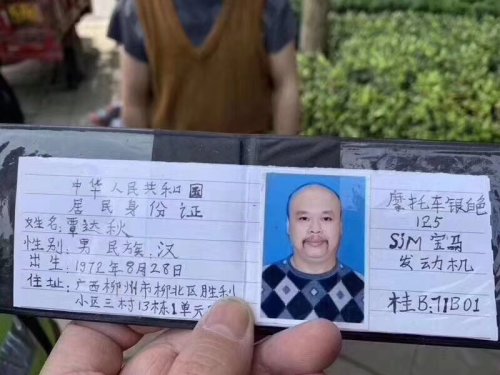 中华人民共和国
居民身份证
姓名：覃达秋
性别：男 民族：汉
出生：1972年8月28日
住址：广西柳州市柳北区胜利
小区三村13栋1单元
摩托车银色
125
SJM 宝马
发动机
桂B:71B01